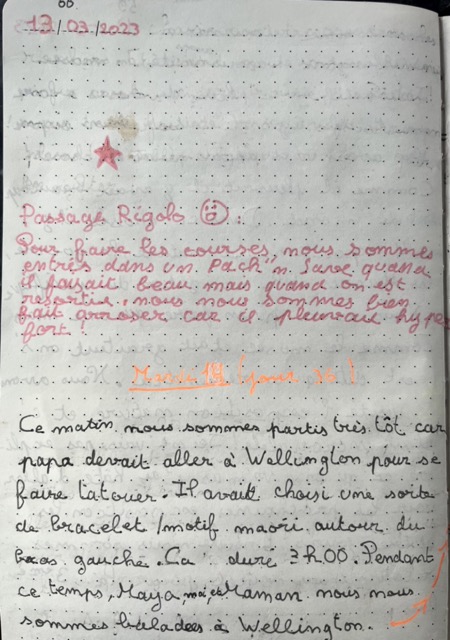 13/03/2023
Passage Rigolo :
Pour faire les courses, nous sommes
entrés dans un Pack'n Save quand
il faisait beau mais quand on est
ressortie, nous nous sommes bien
fait arroser car il pleuvait hyper
fort !
Mardi 14 (jour 36)
Ce matin nous sommes partis très tôt car
papa devait aller à Wellington pour se
faire tatouer. Il avait choisi une sorte
de bracelet/motif maori autour du
bras gauche. Ca duré 3h00. Pendant
ce temps, Maya, moi, et Maman nous nous
sommes baladées à Wellington.